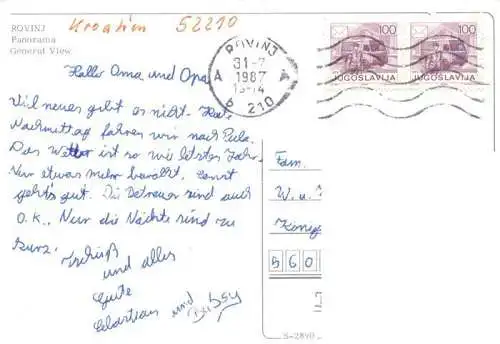 Kroatien 52210
ROVINJ
Panorama
General View
ROVINJ
31-7
1987
13-14
A
6 210
100
JUGOSLAVIJA
100
JUGOSLAVIJA
Hallo Oma und Opa
Viel neues gibt es nicht. Heute
Nachmittag fahren wir nach Pula.
Das Wetter ist so wie letztes Jahr.
Nur etwas mehr bewölkt. Sonst
geht's gut. Die Betreuer sind auch
O.K., Nur die Nächte sind zu
kurz.
Tschüß
und alles
Gute
Sebastian und
Fam.
W. u.
König
560
S-2890